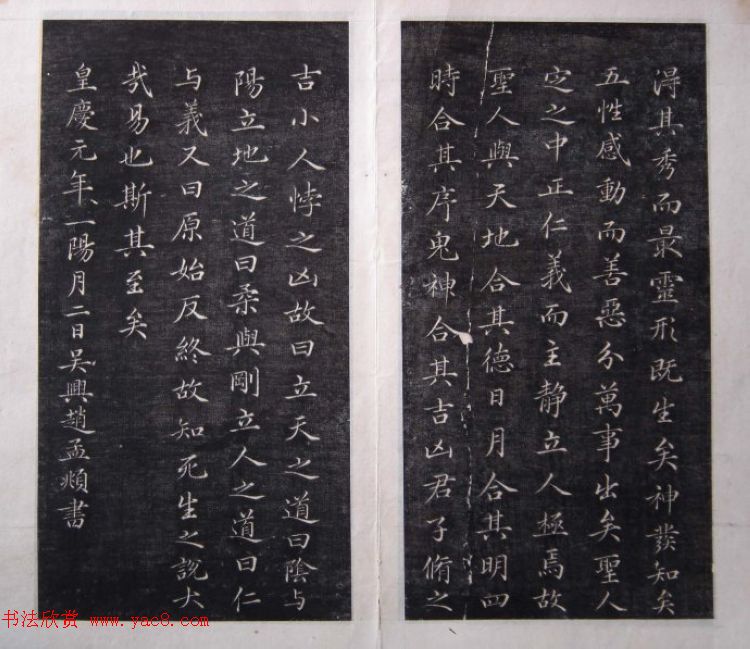 得其秀而最靈形既生矣神發知矣
五性感動而善惡分萬事出矣聖人
定之中正仁義而主静立人極焉故
聖人與天地合其德日月合其明四
時合其序鬼神合其吉凶君子脩之
吉小人悖之凶故曰立天之道曰陰与
陽立地之道曰柔與剛立人之道曰仁
与義又曰原始反終故知死生之説大
哉易也斯其至矣
皇慶元年一陽月二日吴興趙孟頫書
书法欣赏 www.yac8.com